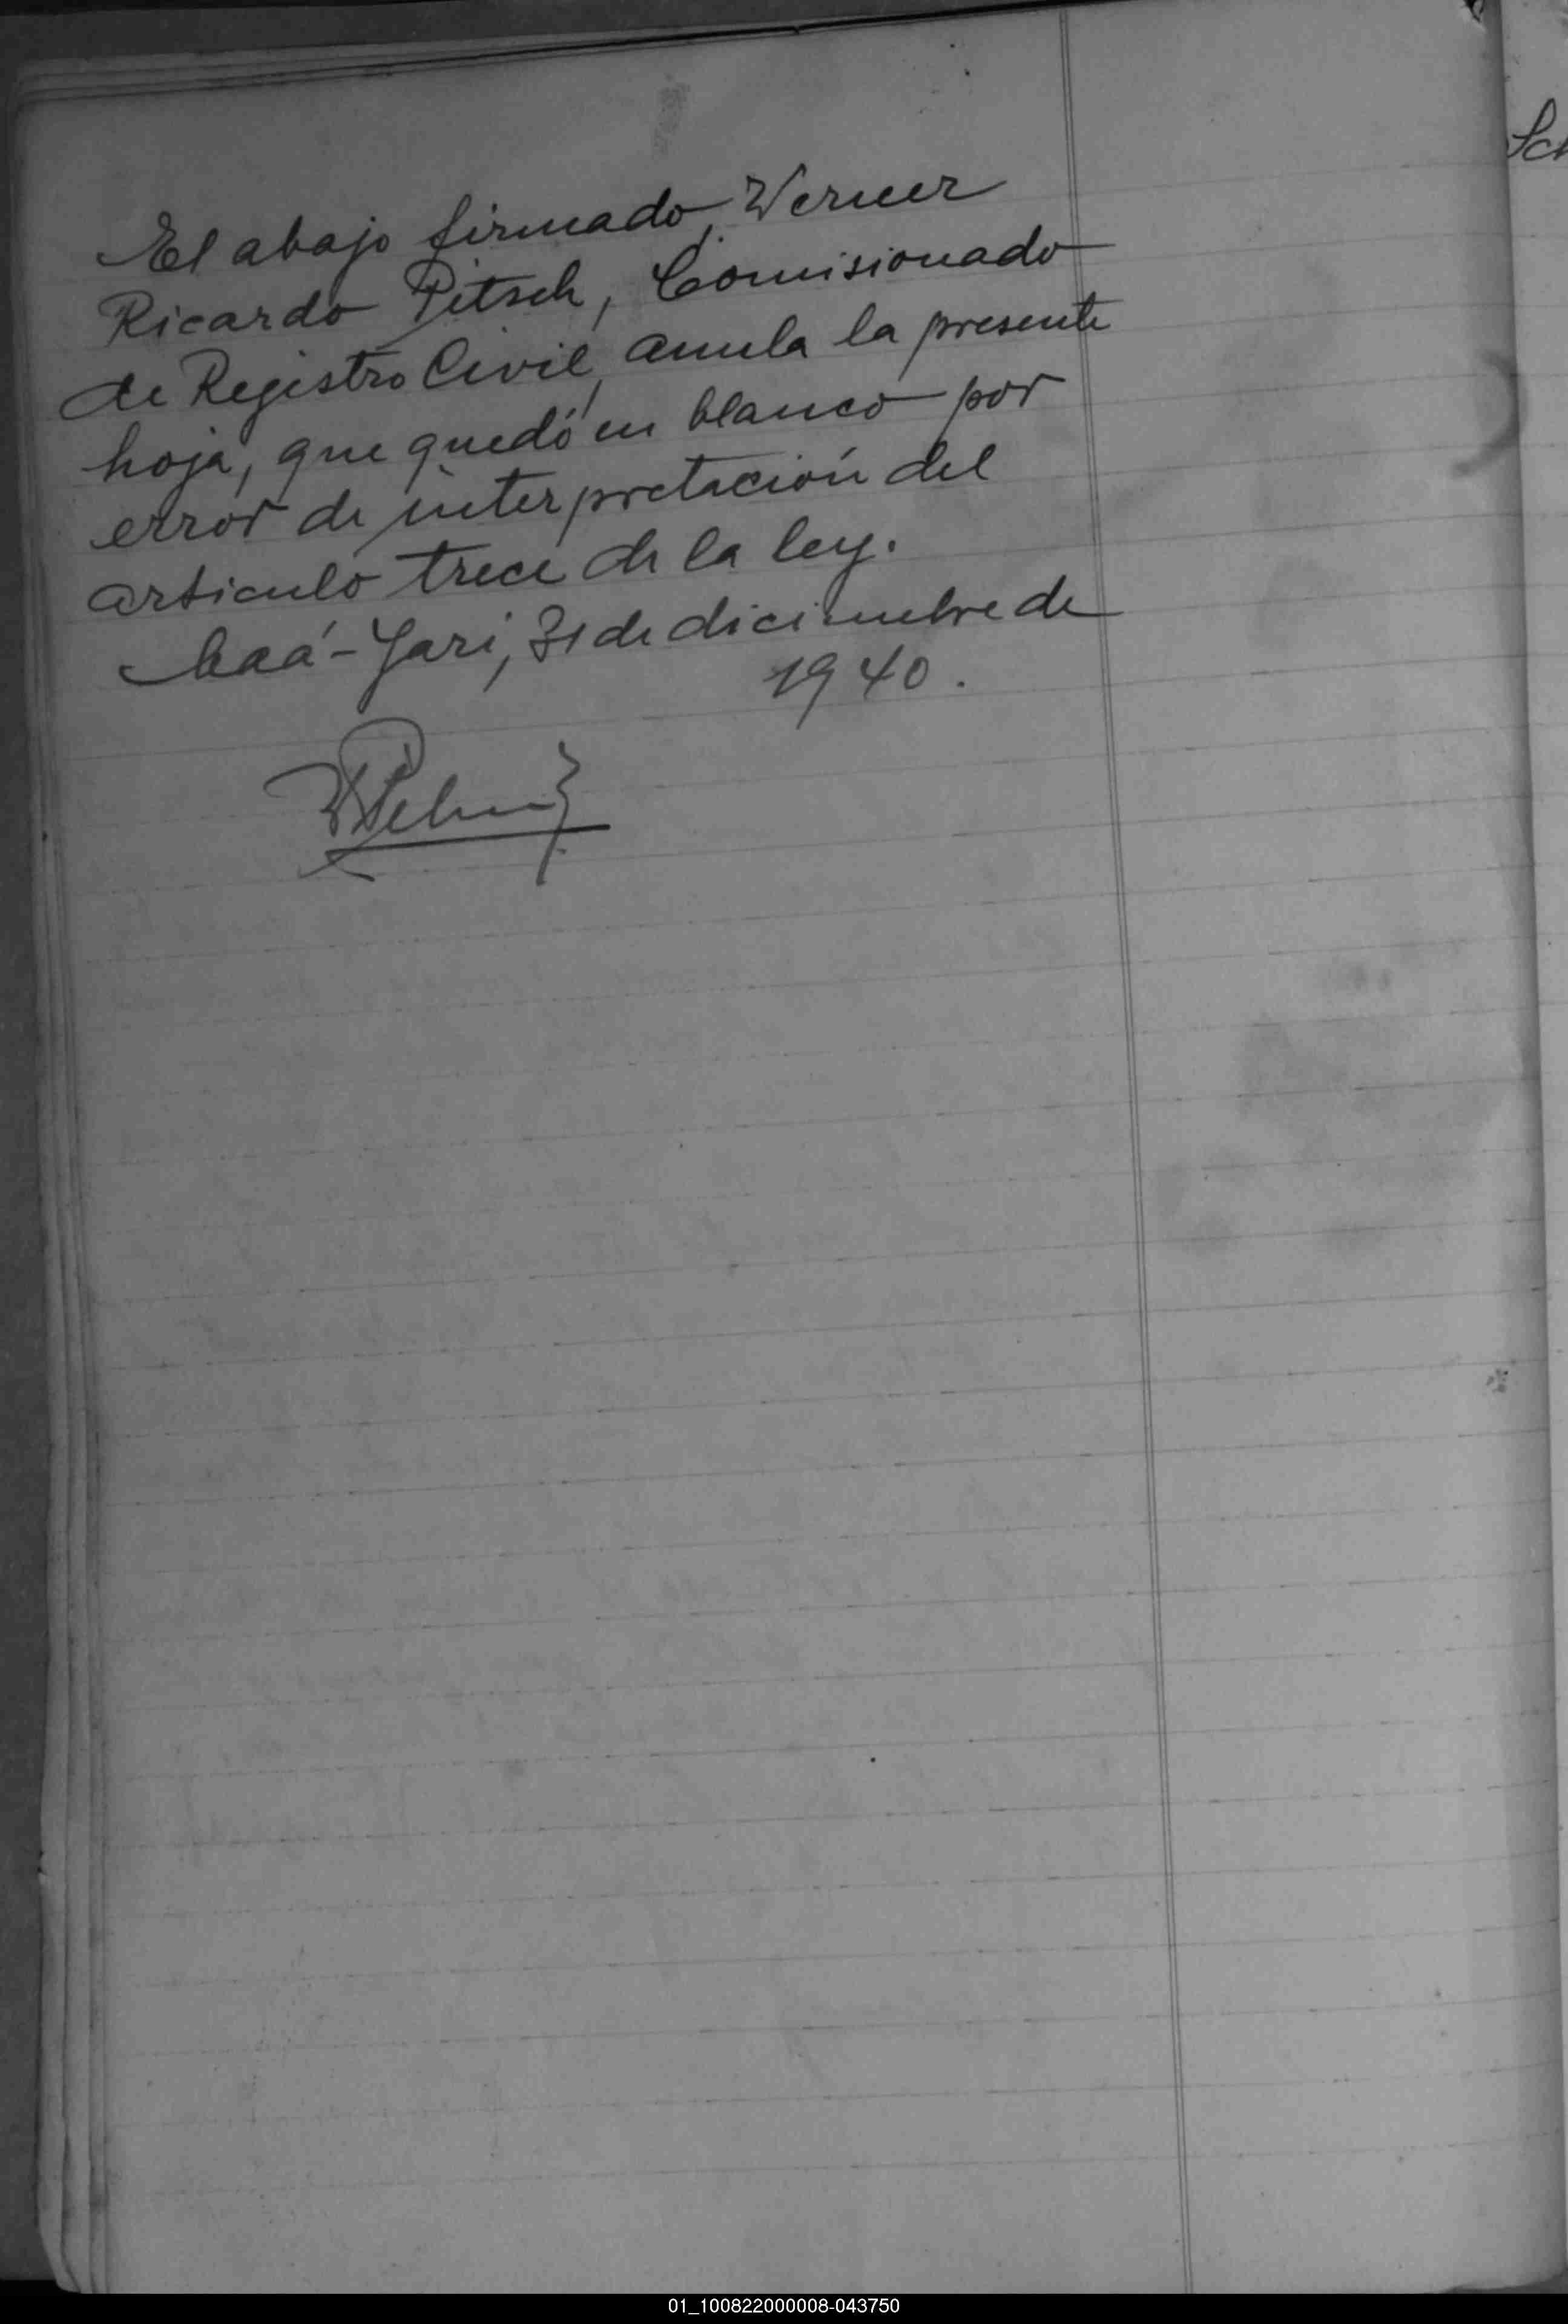 El abajo firmado, Werner
Ricardo Pitsch, Comisionado
de Registro Civil, anula la presente
hoja, que quedó en blanco por
error de interpretación del
articulo trece de la ley.
Caá-Yari, 31 de diciembre de
1940.
Sch
01_100822000008-043750